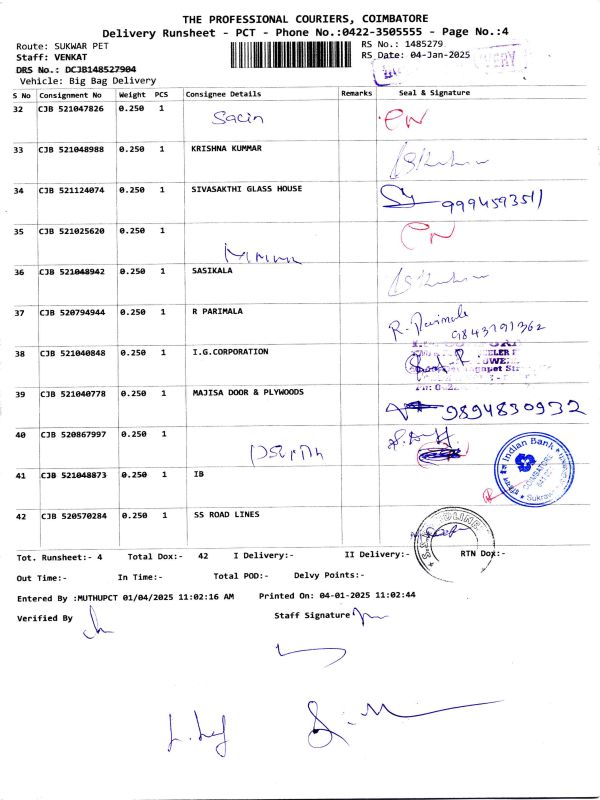 THE PROFESSIONAL COURIERS, COIMBATORE
Delivery Runsheet - PCT - Phone No.:0422-3505555 - Page No.:4
Route: SUKWAR PET RS No.: 1485279
Staff: VENKAT RS Date: 04-Jan-2025
DRS No.: DCJB148527904
Vehicle: Big Bag Delivery
S No Consignment No Weight PCS Consignee Details Remarks Seal & Signature
32 CJB 521047826 0.250 1 Sacin
33 CJB 521048988 0.250 1 KRISHNA KUMMAR
34 CJB 521124074 0.250 1 SIVASAKTHI GLASS HOUSE 9994593511
35 CJB 521025620 0.250 1
36 CJB 521048942 0.250 1 SASIKALA
37 CJB 520794944 0.250 1 R PARIMALA R. Parimala
9843791362
38 CJB 521040848 0.250 1 I.G.CORPORATION
39 CJB 521040778 0.250 1 MAJISA DOOR & PLYWOODS 9894830932
40 CJB 520867997 0.250 1
41 CJB 521048873 0.250 1 IB Indian Bank COIMBATORE
42 CJB 520570284 0.250 1 SS ROAD LINES
Tot. Runsheet:- 4 Total Dox:- 42 I Delivery:- II Delivery:- RTN Dox:-
Out Time:- In Time:- Total POD:- Delvy Points:-
Entered By :MUTHUPCT 01/04/2025 11:02:16 AM Printed On: 04-01-2025 11:02:44
Verified By Staff Signature